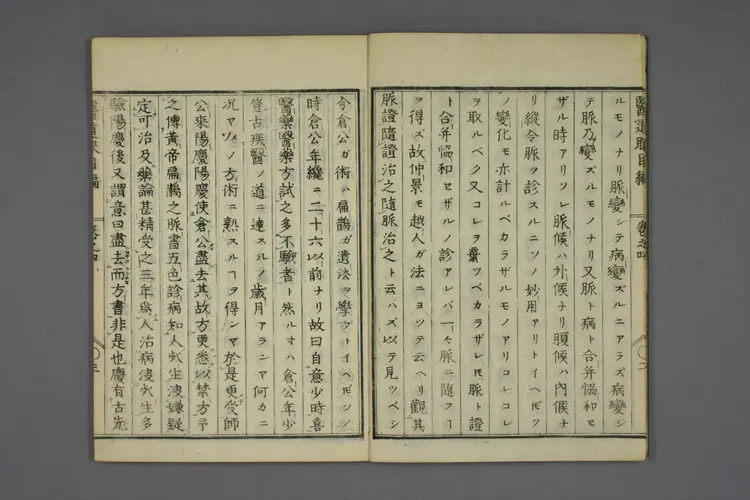 ルモノナリ脈變シテ病變ズルニアラズ病變シ
テ脈乃變ズルモノナリ又脈ト病ト合并恊和セ
ザル時アリソレ脈候ハ外候ナリ腹候ハ內候ナ
リ縱令脈ヲ診スルニソノ妙用アリトイヘ𪜈ソ
ノ變化モ亦計ルベカラザルモノアリコレコレ
ヲ取ルベク又コレヲ棄ツベカラザレ𪜈脈ト證
ト合并恊和セザルノ診アレバ一々脈ニ隨フヿ
ヲ得ズ故仲景モ越人ガ法ニヨツテ云ヘリ觀其
脈證隨證治之隨脈治之ト云ハズ以テ見ツベシ
今倉公ガ術ハ扁鵲ガ遺法ヲ學ブトイヘ𪜈ソノ
時倉公年纔ニ二十六以前ナリ故曰自意少時喜
醫藥醫藥方試之多不驗者ト然ルオハ倉公年少
豈古疾醫ノ道ニ達スルノ歲月アランヤ何カニ
况ヤソノ方術ニ熟スルヿヲ得ンヤ於是更受師
公乘陽慶陽慶使倉公盡去其故方更悉以禁方予
之傳黃帝扁鵲之脈書五色診病知人死生決嫌疑
定可治及藥論甚精受之三年爲人治病決死生多
驗陽慶後又謂意曰盡去而方書非是也慶有古先